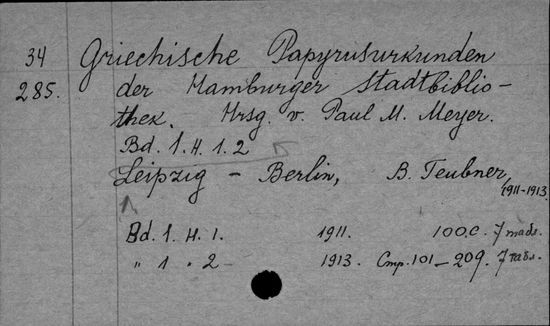 34 Griechische Papyrusurkunden
285. der Hamburger Stadtbiblio-
thek. Hrsg. v. Paul M. Meyer.
Bd. 1. H. 1. 2
Leipzig - Berlin, B. Teubner,
1911-1913
Bd. 1. H. 1. 1911. 100 C. 7 табл.
" 1 " 2 - 1913. Стр. 101-209. 7 табл.